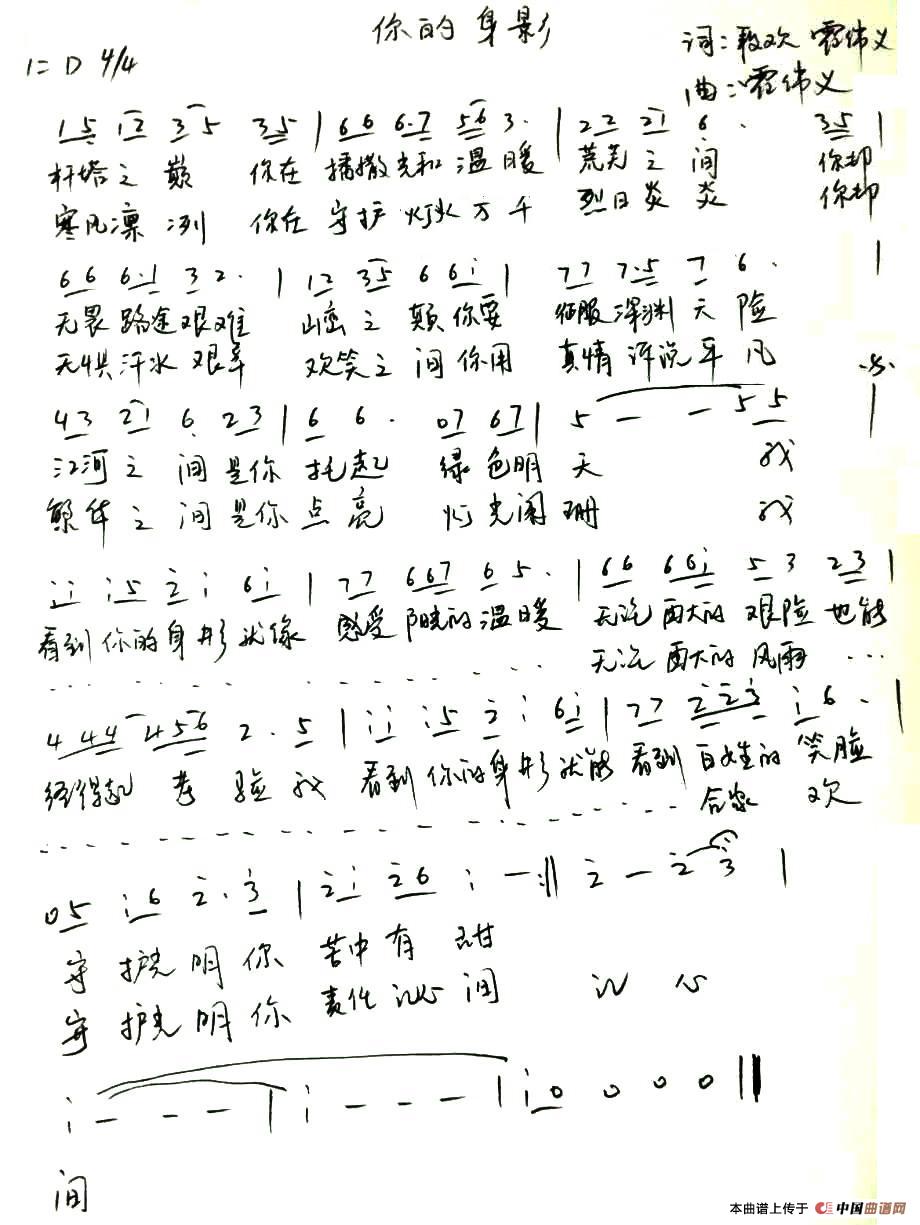 你的身影
词:段欢 霍伟义
1=D 4/4
曲:霍伟义
15 i2 35 35 | 66 6·7 56 3· | 22 21 6· 35 |
杆塔之巅 你在播撒光和温暖 荒芜之间 你却
寒风凛冽 你在守护灯火万千 烈日炎炎 你却
66 6·1 3 2· | 12 35 6 6i | 77 7·5 7 6· |
无畏路途艰难 山峦之颠你要 征服深渊天险
无惧汗水艰辛 欢笑之间你用 真情诉说平凡
43 21 6 23 | 6 6· 07 67 | 5 — — 5 5 |
江河之间是你托起 绿色明天 我
繁华之间是你点亮 灯光阑珊 我
ii i5 2 i 6i | 77 667 6 5· | 66 66i 5 3 23 |
看到你的身形就像 感受阳光的温暖 无论再大的艰险也能
无论再大的风雨
4 44 456 2· 5 | ii i5 2 i 6i | 77 223 i 6· |
经得起考验我 看到你的身形就能看到百姓的笑脸
合家 欢
05 i6 2· 3 | 2i 26 i — :|| 2 — 2 3 |
守护光明你 苦中有甜
守护光明你 责任沁心间 沁心
i — — — | i — — — | i0 0 0 0 ||
间
本曲谱上传于 中国曲谱网